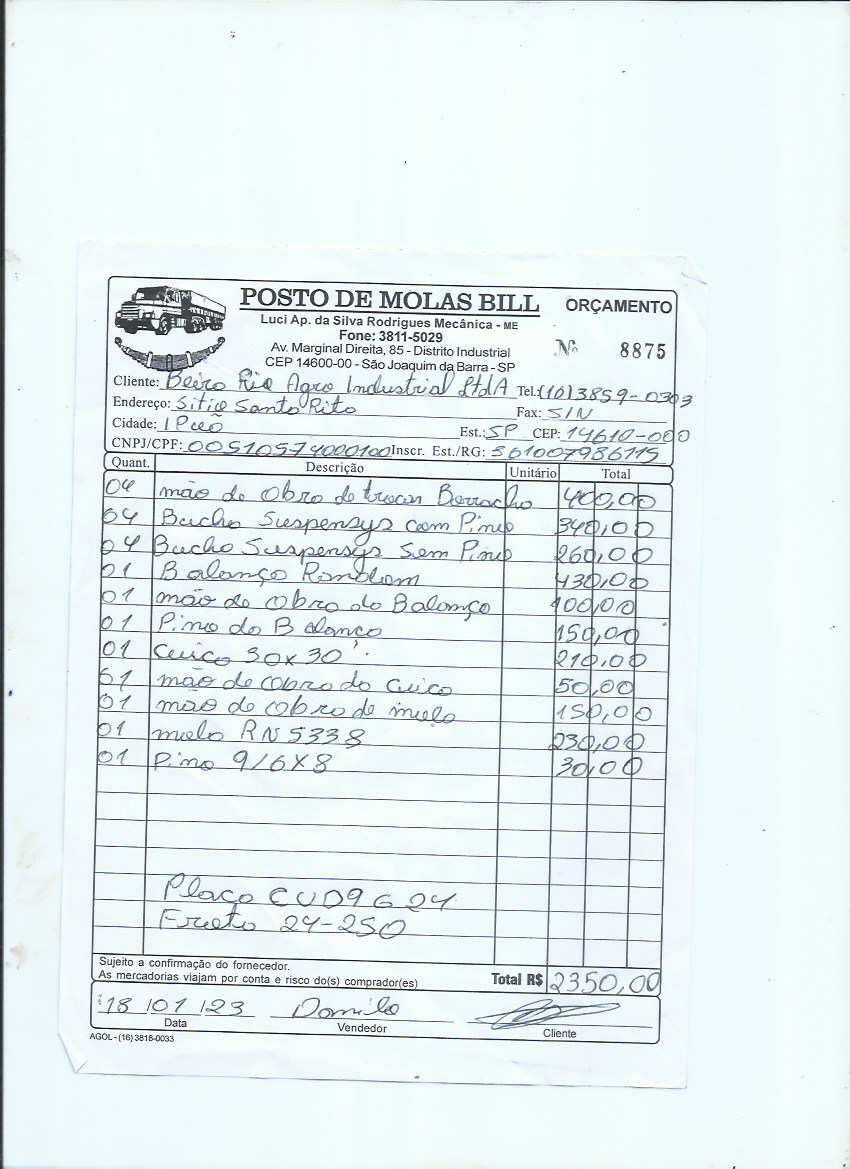 POSTO DE MOLAS BILL ORÇAMENTO
Luci Ap. da Silva Rodrigues Mecânica - ME
Fone: 3811-5029
Av. Marginal Direita, 85 - Distrito Industrial
CEP 14600-00 - São Joaquim da Barra - SP
Nº 8875
Cliente: Beira Rio Agro Industrial LtdA Tel.: (16) 3859-0303
Endereço: Sitio Santa Rita Fax: S/N
Cidade: IPuã Est.: SP CEP: 14610-000
CNPJ/CPF: 00510574000100 Inscr. Est./RG: 361007986115
Quant. Descrição Unitário Total
04 mão de obra de trocar Borracha 400,00
04 Bucha Suspensys com Pino 340,00
04 Bucha Suspensys Sem Pino 260,00
01 Balança Random 430,00
01 mão de obra da Balança 100,00
01 Pino da Balança 150,00
01 Cuica 30x30 210,00
01 mão de obra da Cuica 50,00
01 mão de obra de mola 150,00
01 mola RN 5338 230,00
01 Pino 9/6X8 30,00
Placa CUD9G24
24-250
Sujeito a confirmação do fornecedor.
As mercadorias viajam por conta e risco do(s) comprador(es) Total R$ 2350,00
18/01/23 Danilo
Data Vendedor Cliente
AGOL - (16) 3818-0033